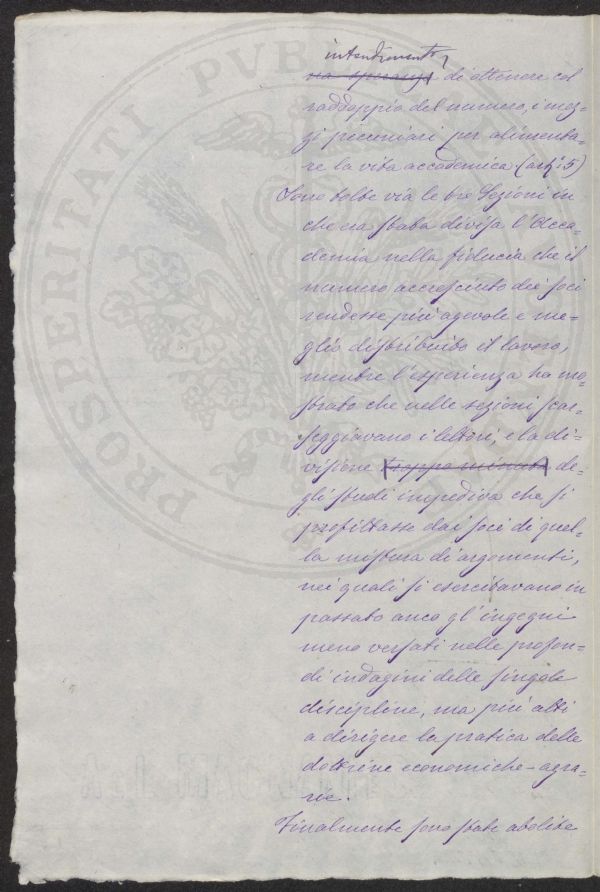 intendimento
ra speranza di ottenere col
raddoppio del numero, i mez=
zi pecuniari per alimenta=
re la vita accademica (art.° 5)
Sono tolte via le tre Sezioni in
che era stata divisa l'Acca=
demia nella fiducia che il
numero accresciuto dei soci
rendesse più agevole e me=
glio distribuito il lavoro,
mentre l'esperienza ha mo=
strato che nelle sezioni scar=
seggiavano i lettori, e la di=
visione troppo minuta de=
gli studi impediva che si
profittasse dai soci di quel=
la mistura di argomenti,
nei quali si esercitavano in
passato anco gl'ingegni
meno versati nelle profon=
di indagini delle singole
discipline, ma più atti
a dirigere la pratica delle
dottrine economiche-agra=
rie.
Finalmente sono state abolite
PROSPERITATI PVBLICAE